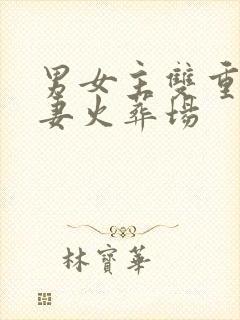 男女主雙重
妻火葬場
林寶華